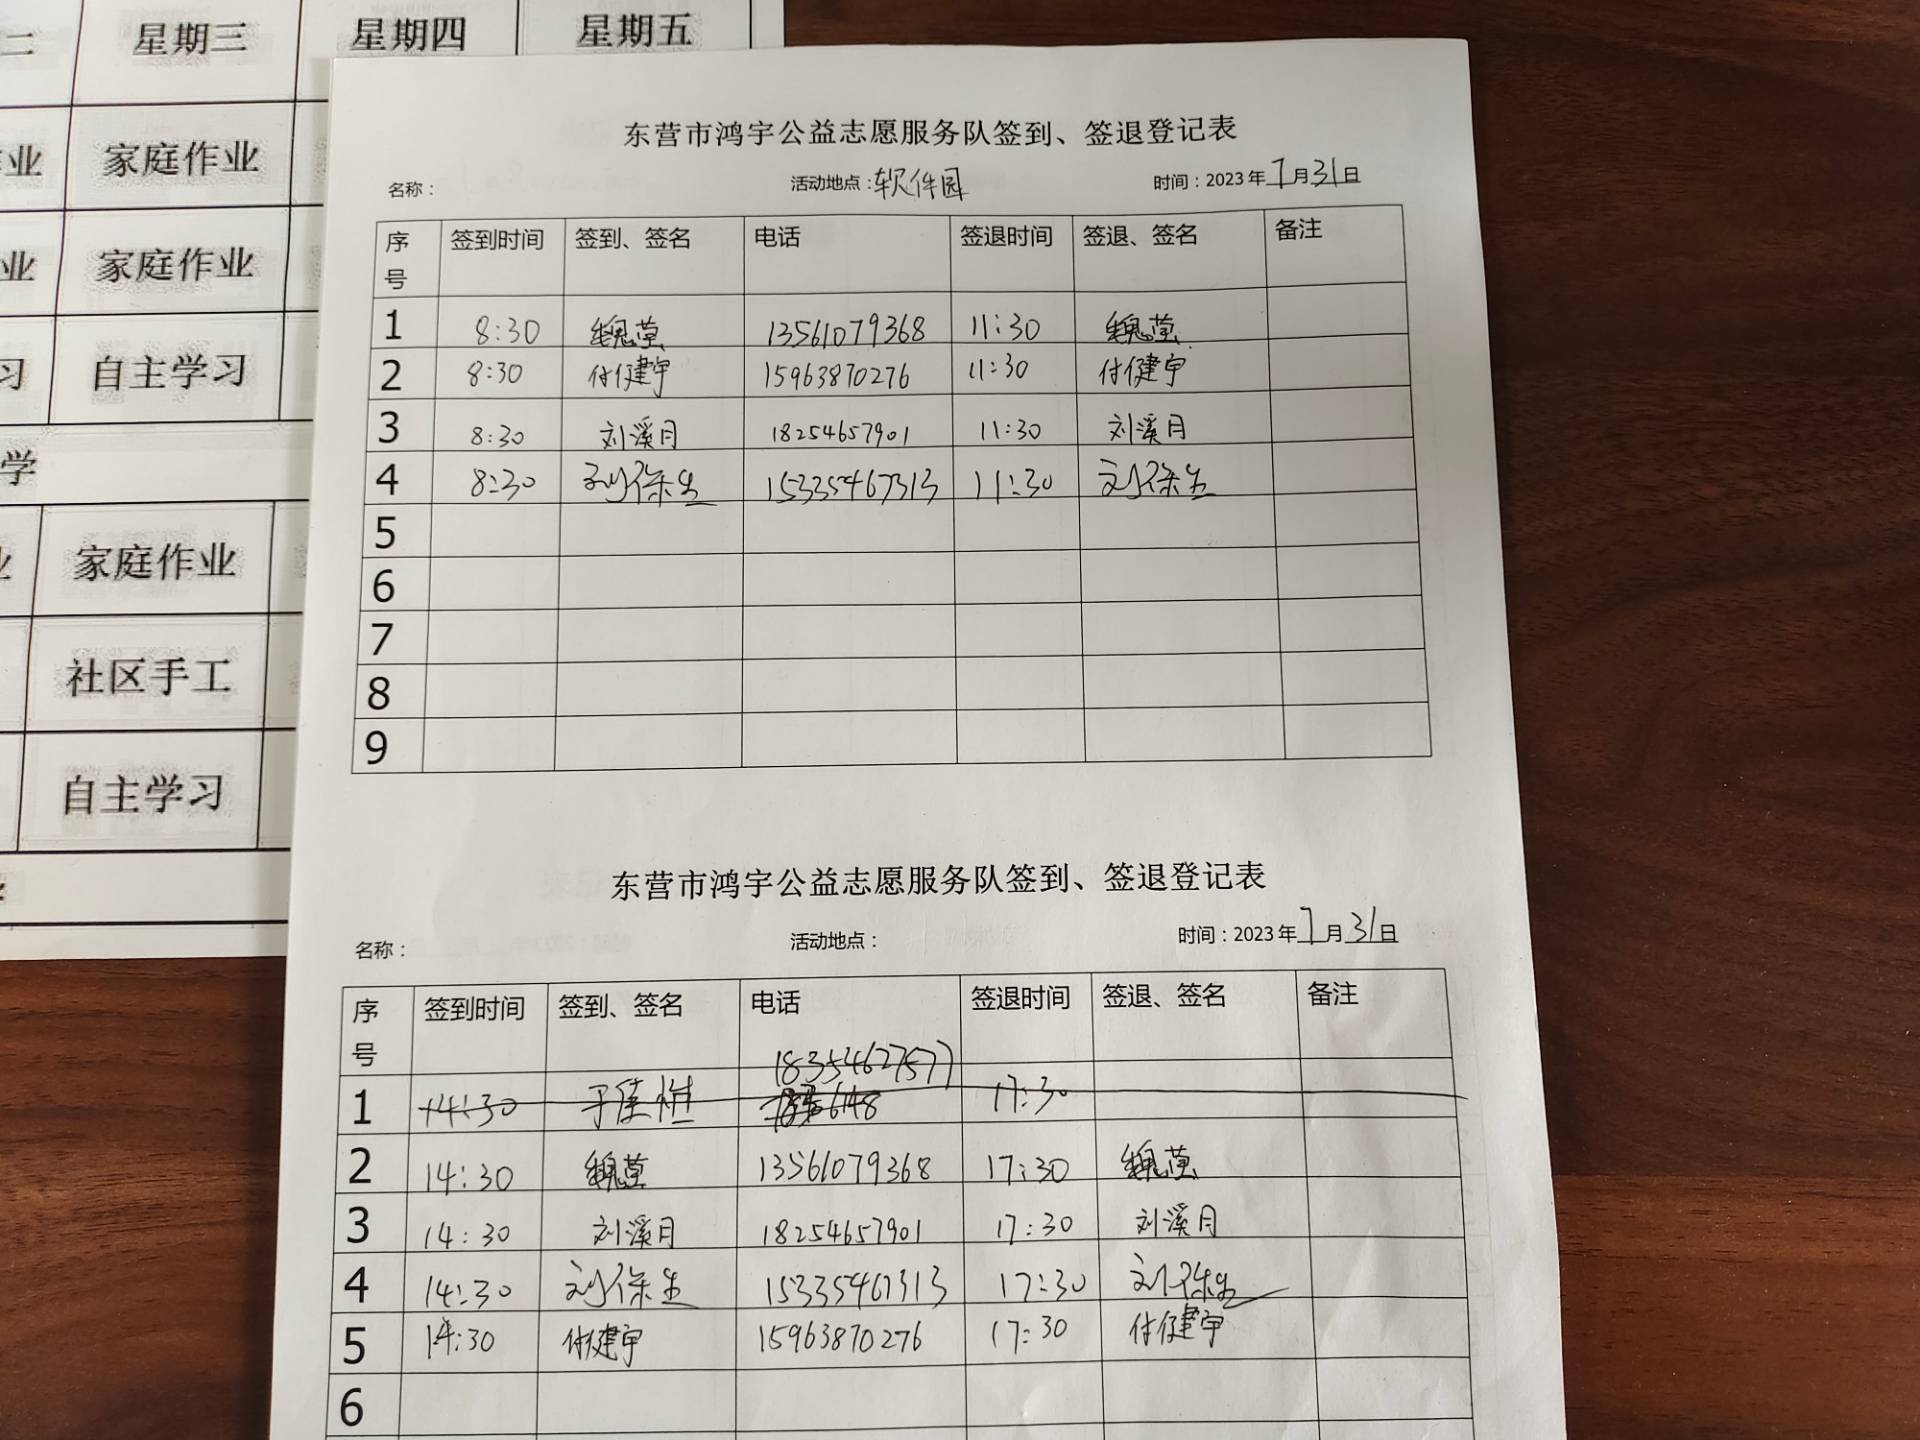 二 星期三 星期四 星期五
作业 家庭作业
业 家庭作业
习 自主学习
学
业 家庭作业
社区手工
自主学习
东营市鸿宇公益志愿服务队签到、签退登记表
名称： 活动地点：软件园 时间：2023年7月31日
序号 签到时间 签到、签名 电话 签退时间 签退、签名 备注
1 8:30 魏莹 13561079368 11:30 魏莹
2 8:30 付健宇 15963870276 11:30 付健宇
3 8:30 刘溪月 18254657901 11:30 刘溪月
4 8:30 刘保生 15335467313 11:30 刘保生
5
6
7
8
9
东营市鸿宇公益志愿服务队签到、签退登记表
名称： 活动地点： 时间：2023年7月31日
序号 签到时间 签到、签名 电话 签退时间 签退、签名 备注
18354627577
1 14:30 17:30
2 14:30 魏莹 13561079368 17:30 魏莹
3 14:30 刘溪月 18254657901 17:30 刘溪月
4 14:30 刘保生 15335467313 17:30 刘保生
5 14:30 付健宇 15963870276 17:30 付健宇
6